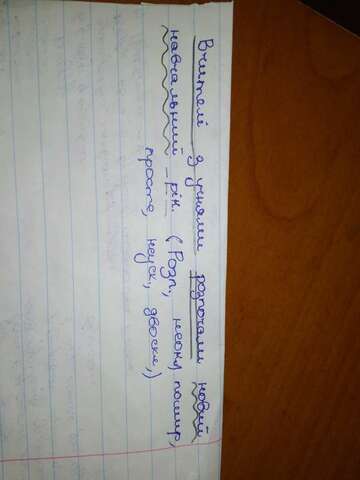 Вчителі з учнями розпочали новий
навчальний рік. (Розп., неокл, пошир,
просте, неуск, двоскл,)